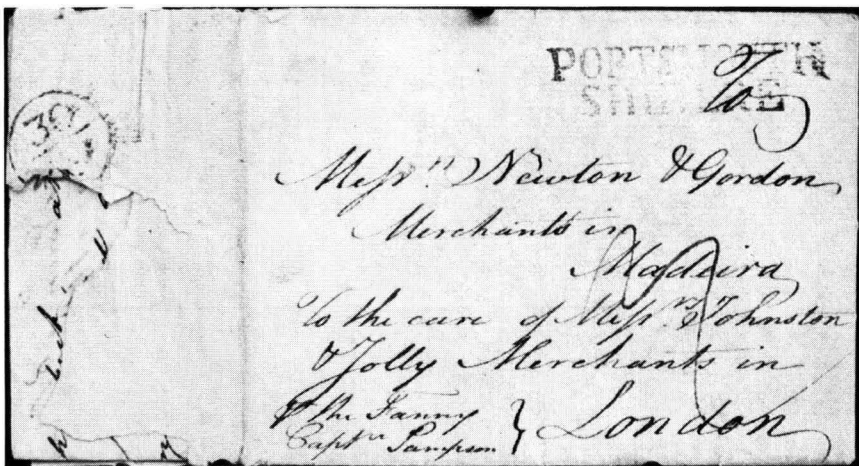 PORTSMOUTH
SHIP LRE
To
Messrs Newton & Gordon
Merchants in
Madeira
To the care of Messrs Johnston
& Jolly Merchants in
London
P the Fanny
Captn Sampson